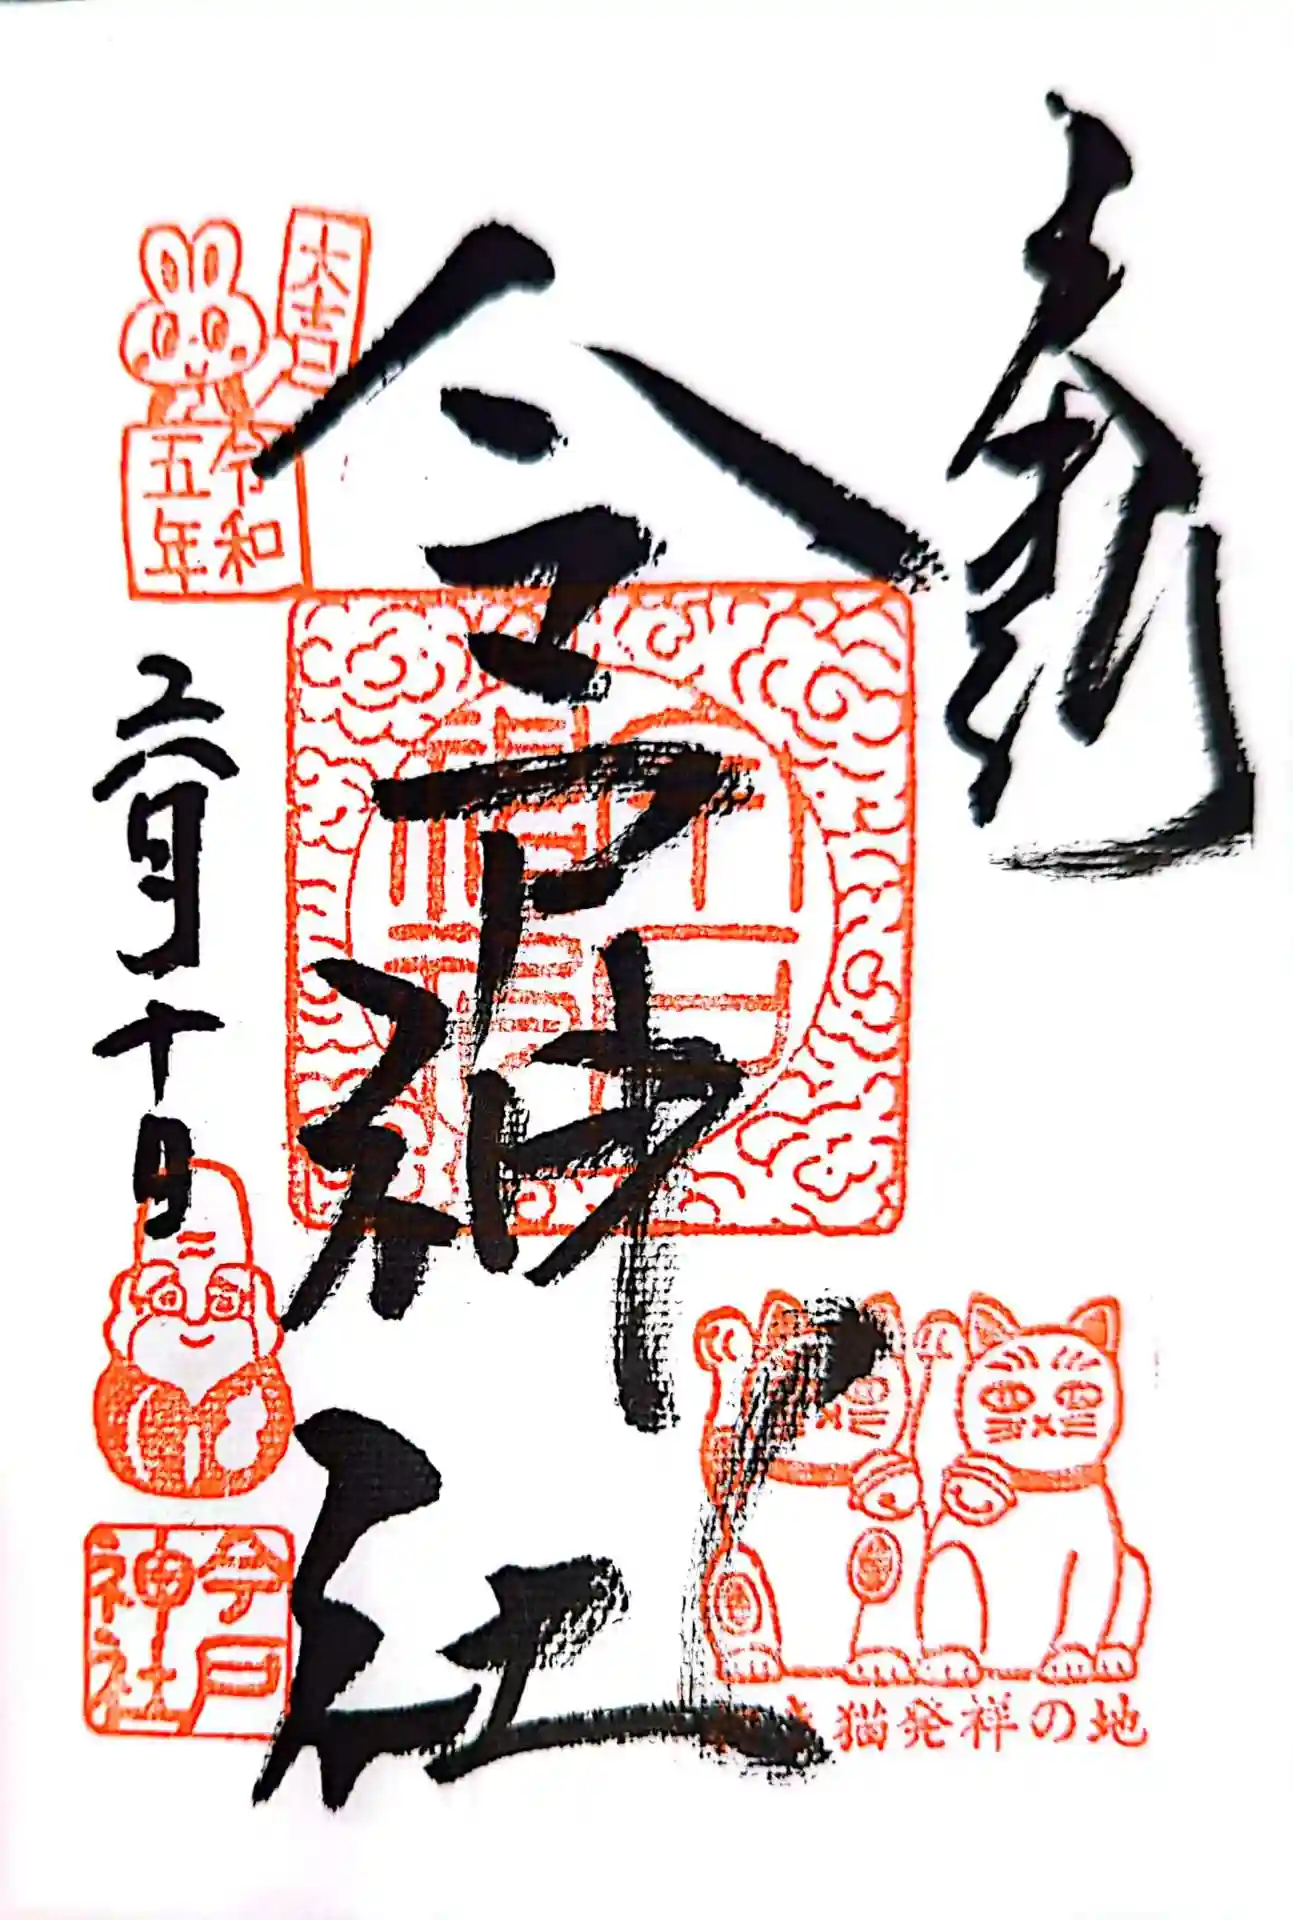 奉拝
今戸神社
大吉
令和
五年
六月十日
今戸
神社
猫発祥の地